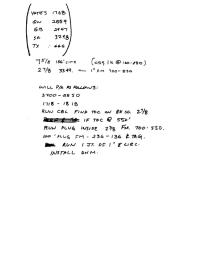 NOTES 1708
GW 2889
GB 2997
SA 3258
TX : 666
7 5/8 186' CMT (CSG 1% @ 100-250)
2 7/8 3349
WILL P/A AS FOLLOWS:
2700 - 2850
1718 - 1818
RUN CBL FIND TOC ON BKSD 2 7/8
IF TOC @ 550'
RUN PLUG INSIDE 2 7/8 FOR 700-550.
100' PLUG FM - 236 - 136 & TAG.
RUN 1 JT OF 1" & CIRC.
INSTALL DHM.